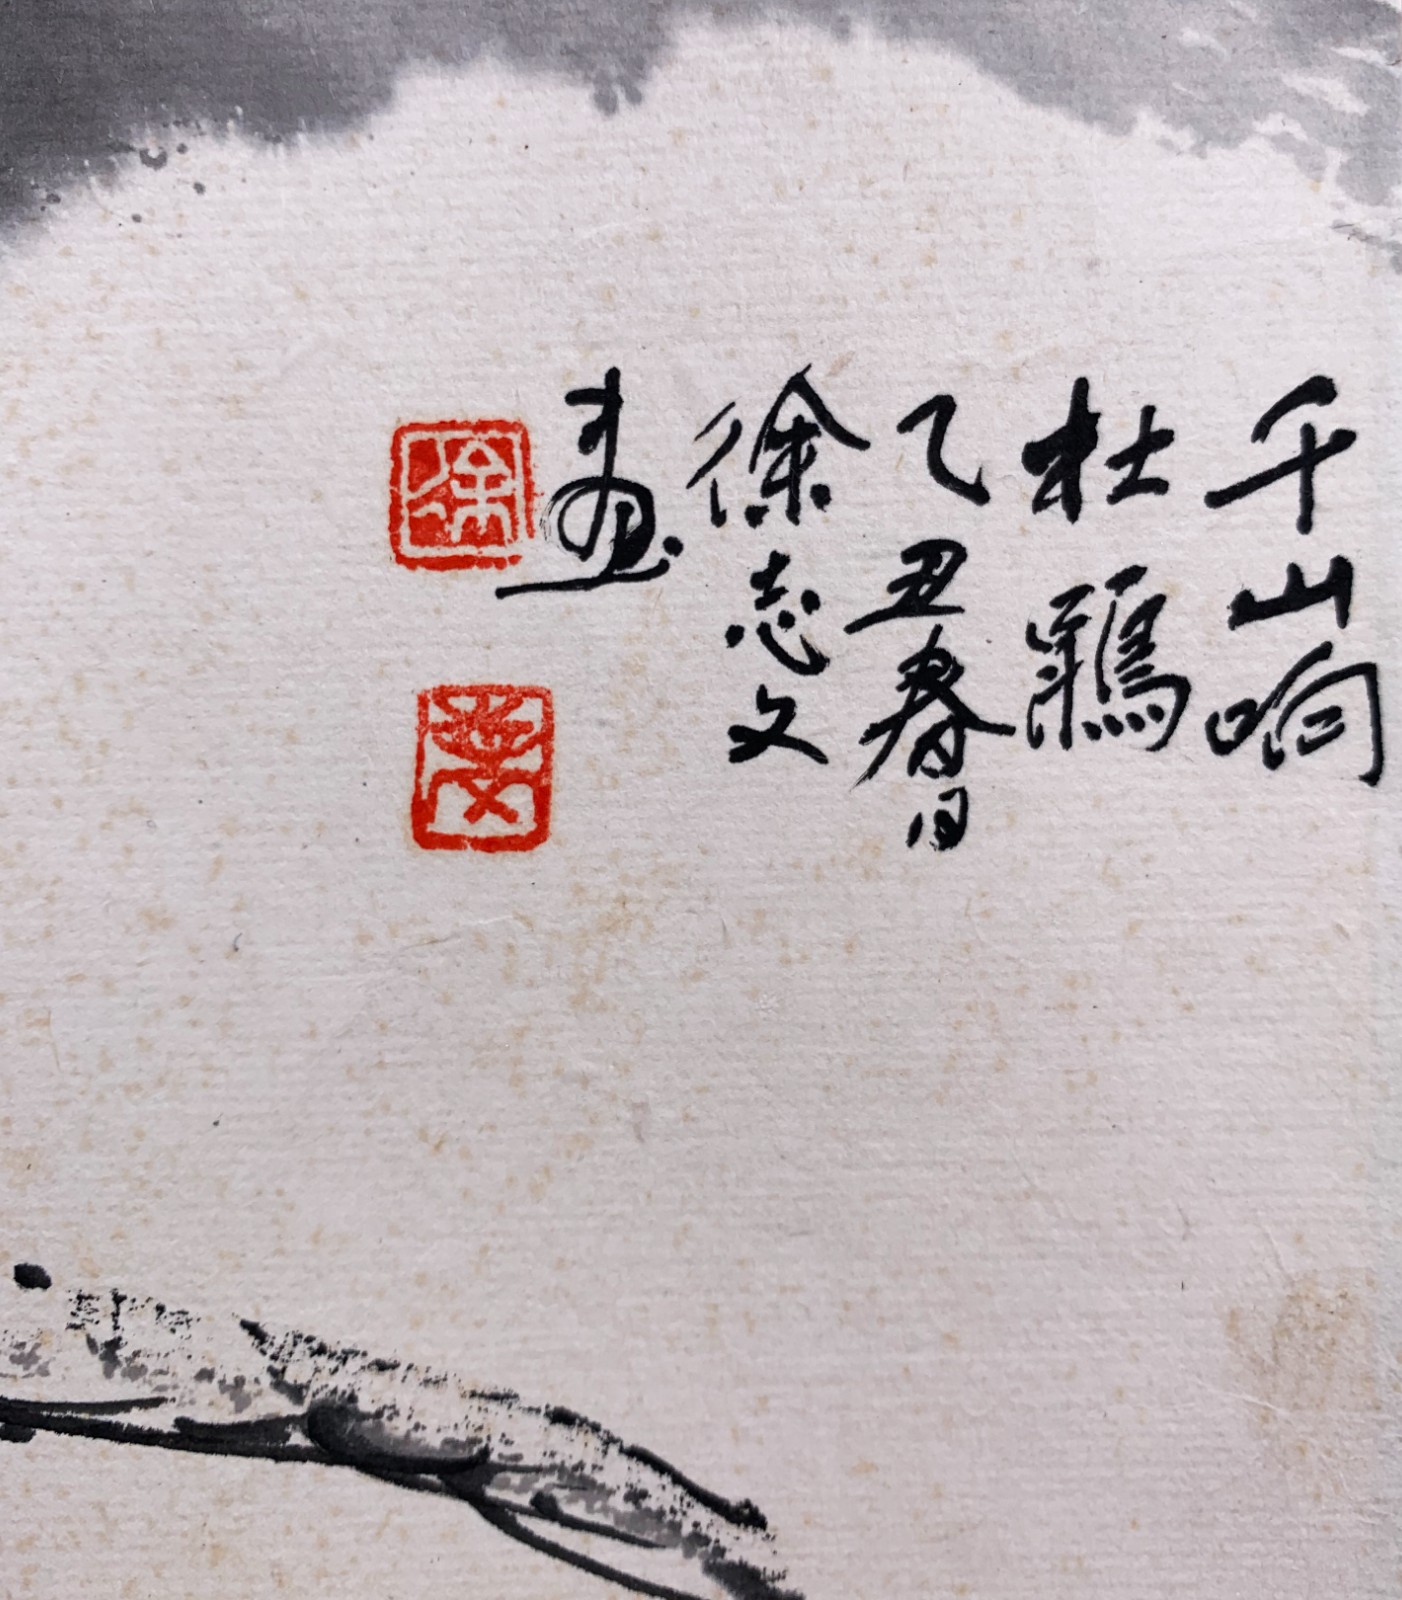 千山响
杜鵑
乙丑春日
徐志文
畫
徐
志文